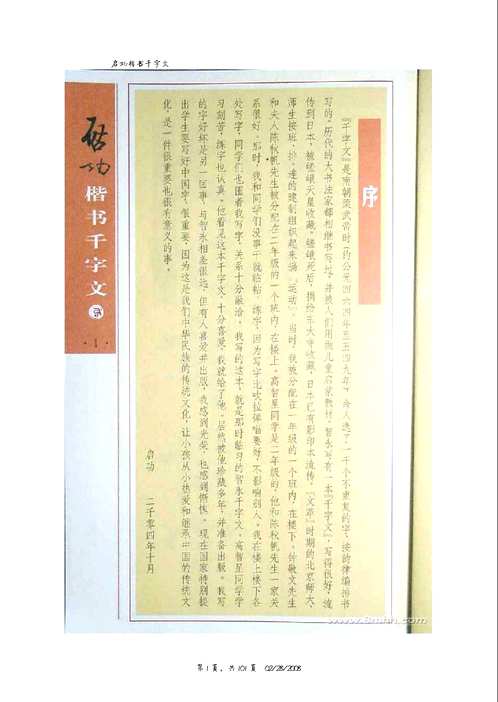 启功楷书千字文
启功
楷书千字文
·1·
序
《千字文》是南朝梁武帝时（约公元四六四年至五四九年），命人选了一千个不重复的字，按韵律编排书
写的。历代的大书法家都用楷书写过，并被人们用做儿童启蒙教材。智永写有一本《千字文》，写得很好，流
传到日本，被嵯峨天皇收藏，嵯峨死后，捐给东大寺收藏，日本已有影印本流传。「文革」时期的北京师大，
师生按班、排、连的建制组织起来搞「运动」。当时，我被分配在一年级的一个班内，在楼下。钟敬文先生
和夫人陈秋帆先生被分配在二年级的一个班内，在楼上。高智星同学是二年级的，他和陈秋帆先生一家关
系很好。那时，我和同学们没事干就粘粘、练字，因为写字比吹拉弹唱要好，不影响别人。我在楼上楼下各
处写字，同学们也围着我写字，关系十分融洽。我写的这本，就是那时临习的智永千字文。高智星同学学
习刻苦，练字也认真。他看见这本千字文，十分喜爱，我就给了他。居然被他珍藏多年，并准备出版。我写
的字好坏是另一回事，与智永相差很远，但有人喜爱并出版，我感到光荣，也感到惭愧。现在国家特别提
出学生要写好中国字，很重要，因为这是我们中华民族的传统文化，让小孩从小热爱和继承中国的传统文
化，是一件很重要也很有意义的事。
启功 二千零四年十月
第1页，共101页 02/28/2008